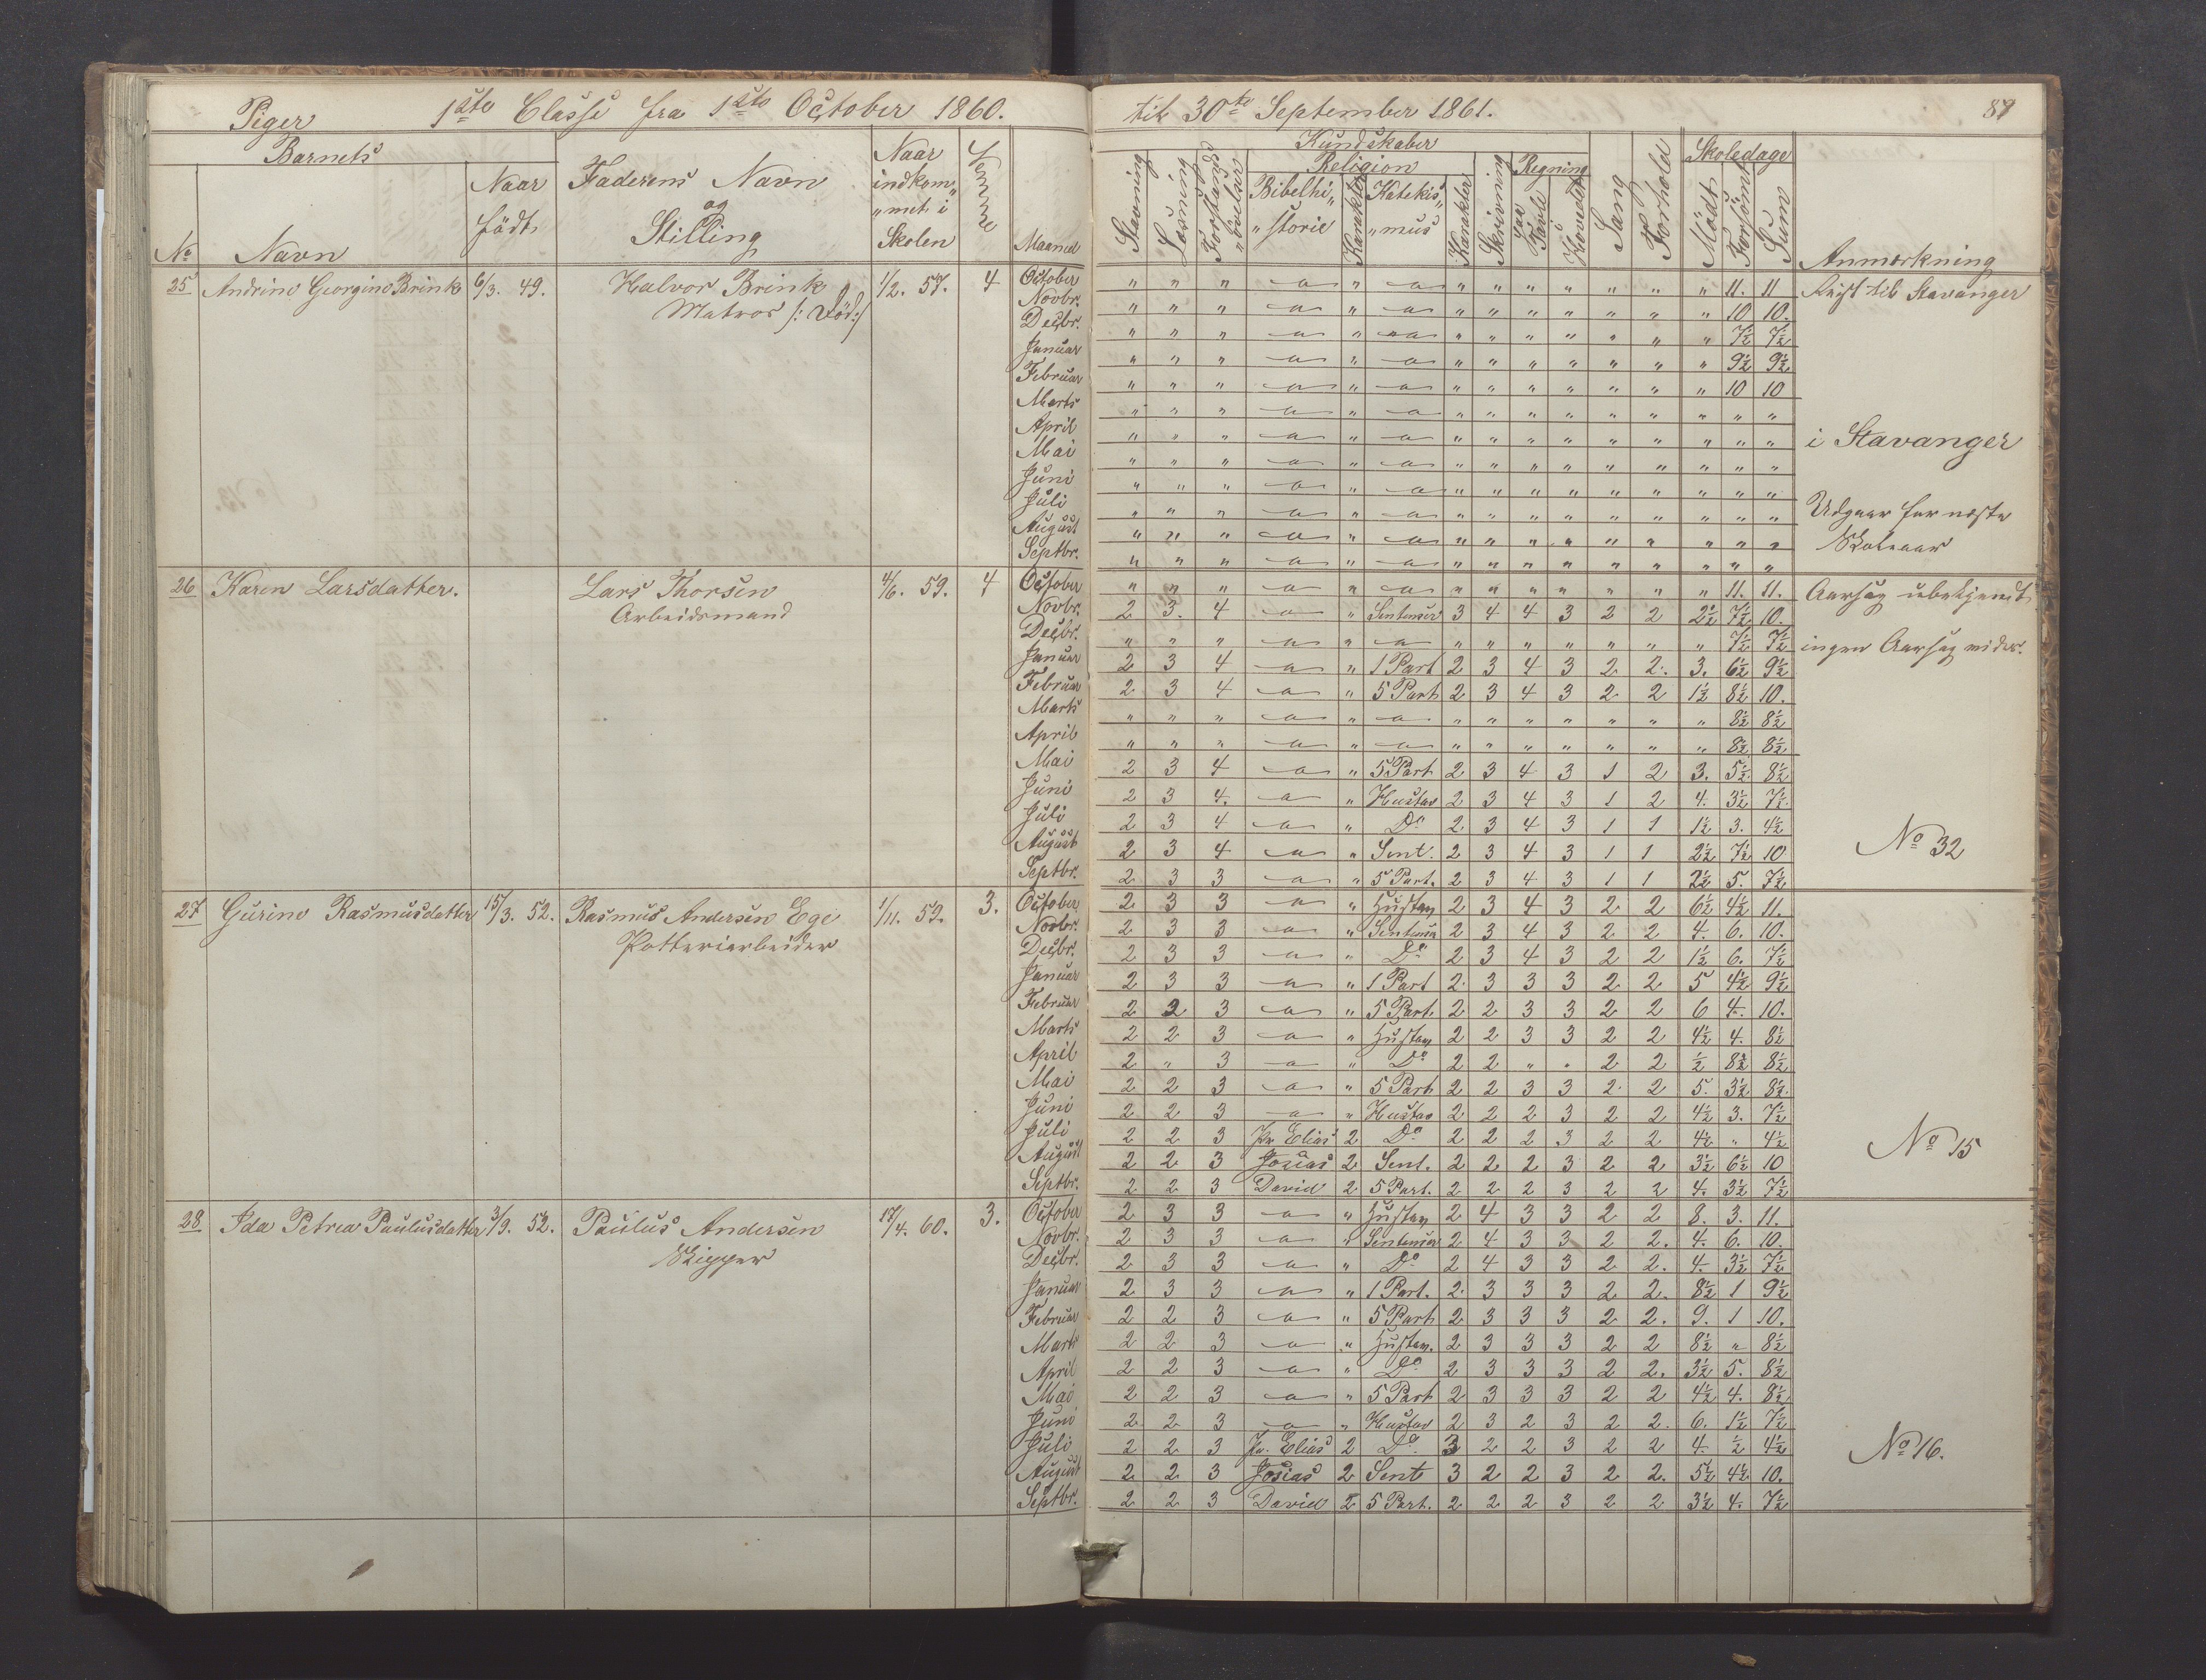 Piger 1ste Classe fra 1ste October 1860. til 30te September 1861. 87
Barnets Faderens Navn og Stilling Naar indkommet i Skolen Maaned Kundskaber Skoledage Anmærkning
No Navn Naar född
Stavning Læsning Forstands övelser Religion Bibelhistorie Karakter Katekismus Karakter Skrivning Regning paa Tavle i Hovedet Sang Forhold Mödt Forsömt Sum
25 Andrine Georgine Brink 6/3. 49. Halvor Brink 1/2. 57. 4
Matros /: Död:/
October " " " — " — " " " " " " " 11. 11 Reist til Stavanger
Novbr. " " " — " — " " " " " " " 10 10.
Decbr. " " " — " — " " " " " " " 7½ 7½
Januar " " " — " — " " " " " " " 9½ 9½
Februar " " " — " — " " " " " " " 10 10
Marts " " " — " — " " " " " " " " "
April " " " — " — " " " " " " " " " i Stavanger
Mai " " " — " — " " " " " " " " "
Juni " " " — " — " " " " " " " " "
Juli " " " — " — " " " " " " " " " Udgaar for næste
August " " " — " — " " " " " " " " " Skoleaar
Septbr. " " " — " — " " " " " " " " "
26 Karen Larsdatter. Lars Thorsen 4/6. 59. 4
Arbeidsmand
October " " " — " — " " " " " " " 11. 11. Aarsag ubekjendt
Novbr. 2 3. 4 — " Sentenser 3 4 4 3 2 2 2½ 7½ 10.
Decbr. " " " — " — " " " " " " " 7½ 7½ ingen Aarsag
Januar 2 3 4 — " 1 Part 2 3 4 3 2 2. 3. 6½ 9½
Februar 2 3 4 — " 5 Part 2 3 4 3 2 2 1½ 8½ 10.
Marts " " " — " — " " " " " " " 8½ 8½
April " " " — " — " " " " " " " 8½ 8½
Mai 2 3 4 — " 5 Part 2 3 4 3 1 2 3. 5½ 8½
Juni 2 3 4. — " Hustav 2 3 4 3 1 2 4. 3½ 7½
Juli 2 3 4 — " Do 2 3 4 3 1 1 1½ 3. 4½
August 2 3 4 — " Sent. 2 3 4 3 1 1 2½ 7½ 10 No 32
Septbr. 2 3 3 — " 5 Part. 2 3 4 3 1 1 2½ 5. 7½
27 Gurine Rasmusdatter 15/3. 52. Rasmus Andersen Ege 1/11. 59. 3.
Potteriarbeider
October 2 3 3 — " Hustav 2 3 4 3 2 2 6½ 4½ 11.
Novbr. 2 3 3 — " Sentenser 2 3 4 3 2 2 4. 6. 10.
Decbr. 2 3 3 — " Do 2 3 4 3 2 2 1½ 6. 7½
Januar 2 3 3 — " 1 Part 2 3 3 3 2 2 5 4½ 9½
Februar 2 2 3 — " 5 Part. 2 2 3 3 2 2 6 4. 10.
Marts 2 2 3 — " Hustav 2 2 3 3 2 2 4½ 4. 8½
April 2 " 3 — " Do 2 2 " " 2 2 ½ 8 8½
Mai 2 2 3 — " 5 Part 2 2 3 3 2 2 5. 3½ 8½
Juni 2 2 3 — " Hustav 2 2 2 3 2 2 4½ 3. 7½
Juli 2 2 3 Pr. Elias 2 Do 2 2 2 3 2 2 4½ " 4½
August 2 2 3 Josias 2 Sent. 2 2 2 3 2 2 3½ 6½ 10 No 15
Septbr. 2 2 3 David 2 5 Part. 2 2 2 3 2 2 4. 3½ 7½
28 Ida Petrea Paulusdatter 3/9. 52. Paulus Andersen 17/4. 60. 3.
Skipper
October 2 3 3 — " Hustav 2 4 3 3 2 2 8. 3. 11.
Novbr. 2 3 3 — " Sentenser 2 4 3 3 2 2. 4. 6. 10.
Decbr. 2 3 3 — " Do 2 4 3 3 2 2. 4. 3½ 7½
Januar 2 3 3 — " 1 Part. 2 3 3 3 2 2. 8½ 1 9½
Februar 2 2 3 — " 5 Part 2 3 3 3 2 2. 9. 1 10.
Marts 2 2 3 — " Hustav. 2 3 3 3 2 2 8½ " 8½
April 2 2 3 — " Do 2 3 3 3 2 2. 3½ 5. 8½
Mai 2 2 3 — " 5 Part 2 3 3 3 2 2 4½ 4. 8½
Juni 2 2 3 — " Hustav 2 3 2 3 2 2. 6. 1½ 7½
Juli 2 2 3 Pr. Elias 2 Do 3 2 2 3 2 2 4. ½ 4½ No 16.
August 2 2 3 Josias 2 Sent 3 2 2 3 2 2. 5½ 4½ 10.
Septbr. 2 2 3 David 2 5 Part. 2 2 2 3 2 2 3½ 4. 7½